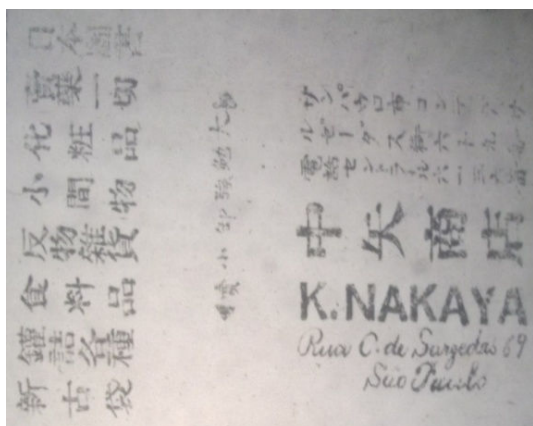 日本圖書
賣藥一切
化粧品
小間物
反物雜貨
食料品
罐詰各種
新古袋
サンパウロ市コンデ
ルゼーダス街六十九
電話セントラル六一三
中矢商店
K.NAKAYA
Rua C. de Sarzedas 69
São Paulo